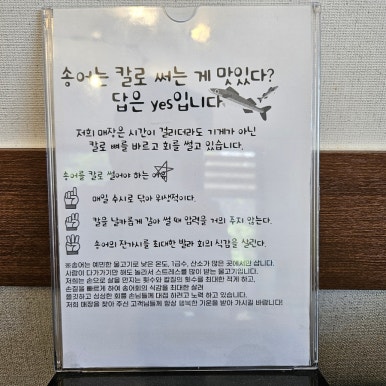 송어는 칼로 써는 게 맛있다?
답은 yes입니다
저희 매장은 시간이 걸리더라도 기계가 아닌
칼로 뼈를 바르고 회를 썰고 있습니다.
송어를 칼로 썰어야 하는 이유
매일 수시로 닦아 위생적이다.
칼을 날카롭게 갈아 썰 때 압력을 거의 주지 않는다.
송어의 잔가시를 최대한 발라 회의 식감을 살린다.
※송어는 예민한 물고기로 낮은 온도, 1급수, 산소가 많은 곳에서만 삽니다.
사람이 다가가기만 해도 놀라서 스트레스를 많이 받는 물고기입니다.
저희는 손으로 살을 만지는 횟수와 칼질의 횟수를 최대한 적게 하고,
손질을 빠르게 하여 송어회의 식감을 최대한 살려
쫄깃하고 싱싱한 회를 손님들께 대접 하려고 노력 하고 있습니다.
저희 매장을 찾아 주신 고객님들께 항상 행복한 기운을 받아 가시길 바랍니다!